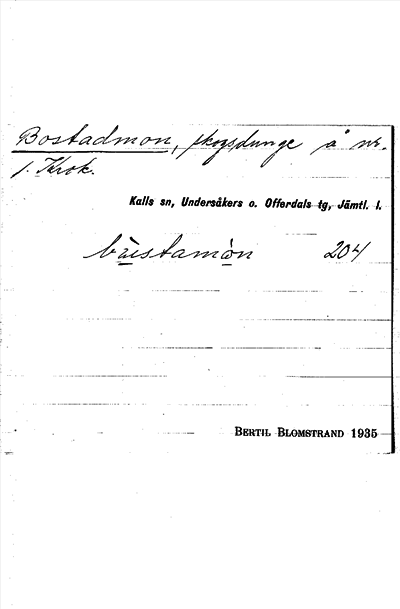 Bostadmon, skogsdunge å nr.
1. Krok.
Kalls sn, Undersåkers o. Offerdals tg, Jämtl. l.
bu̇stamȯn 204
BERTIL BLOMSTRAND 1935